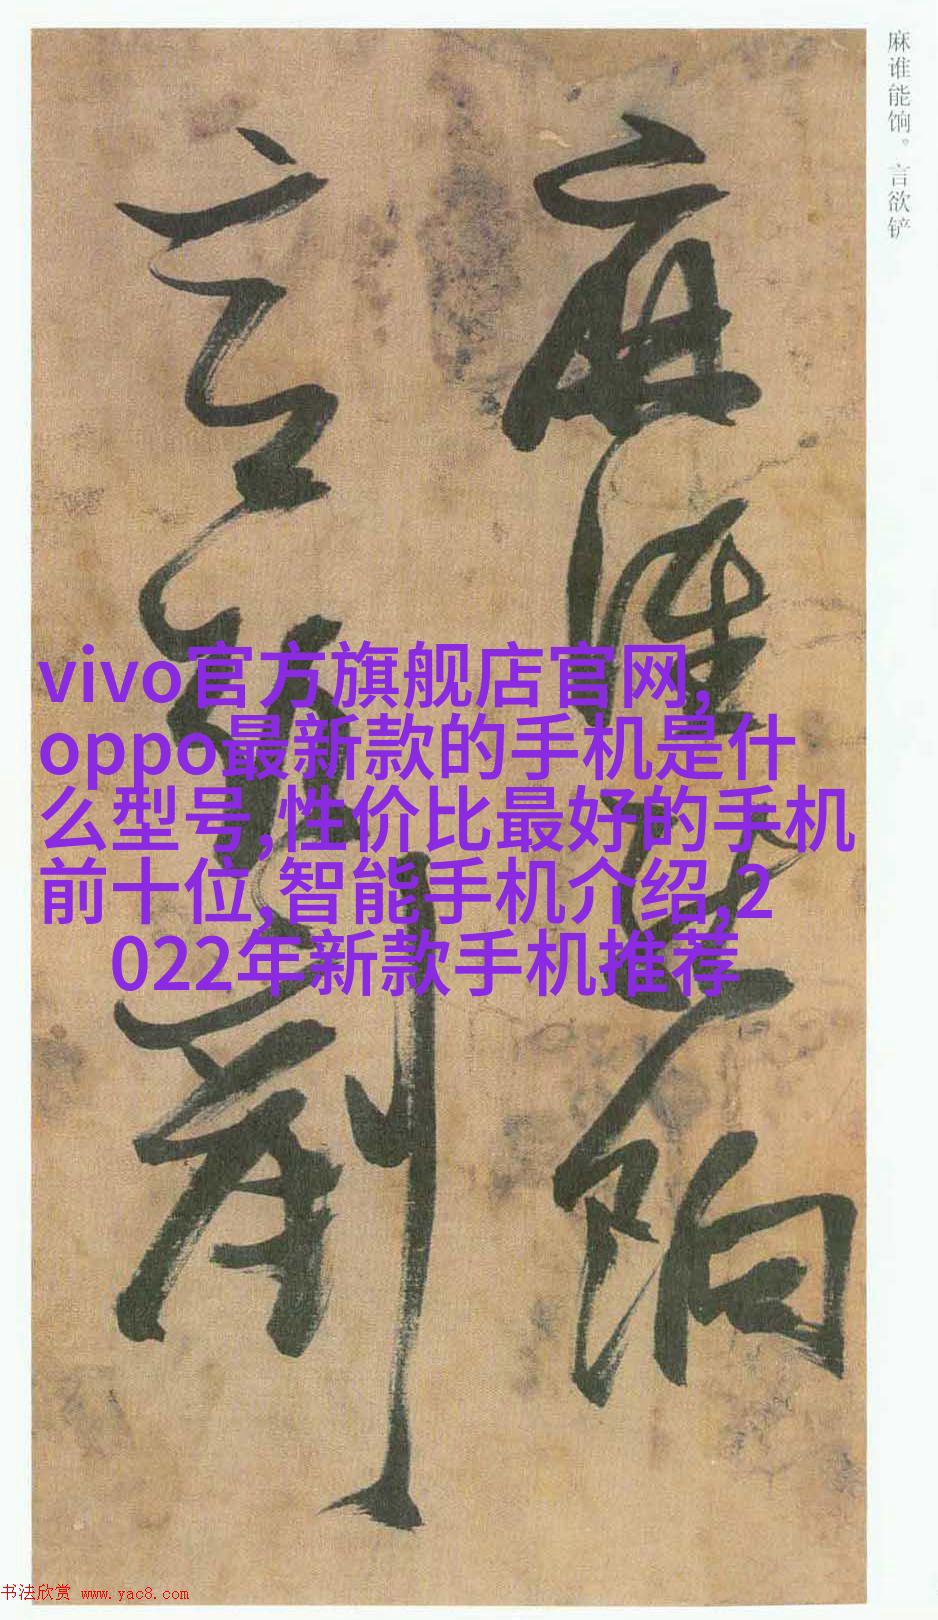 麻谁能饷。言欲铲
麻谁能饷
言欲剷
vivo官方旗舰店官网,
oppo最新款的手机是什
么型号,性价比最好的手机
前十位,智能手机介绍,2
022年新款手机推荐
书法欣赏 www.yac8.com